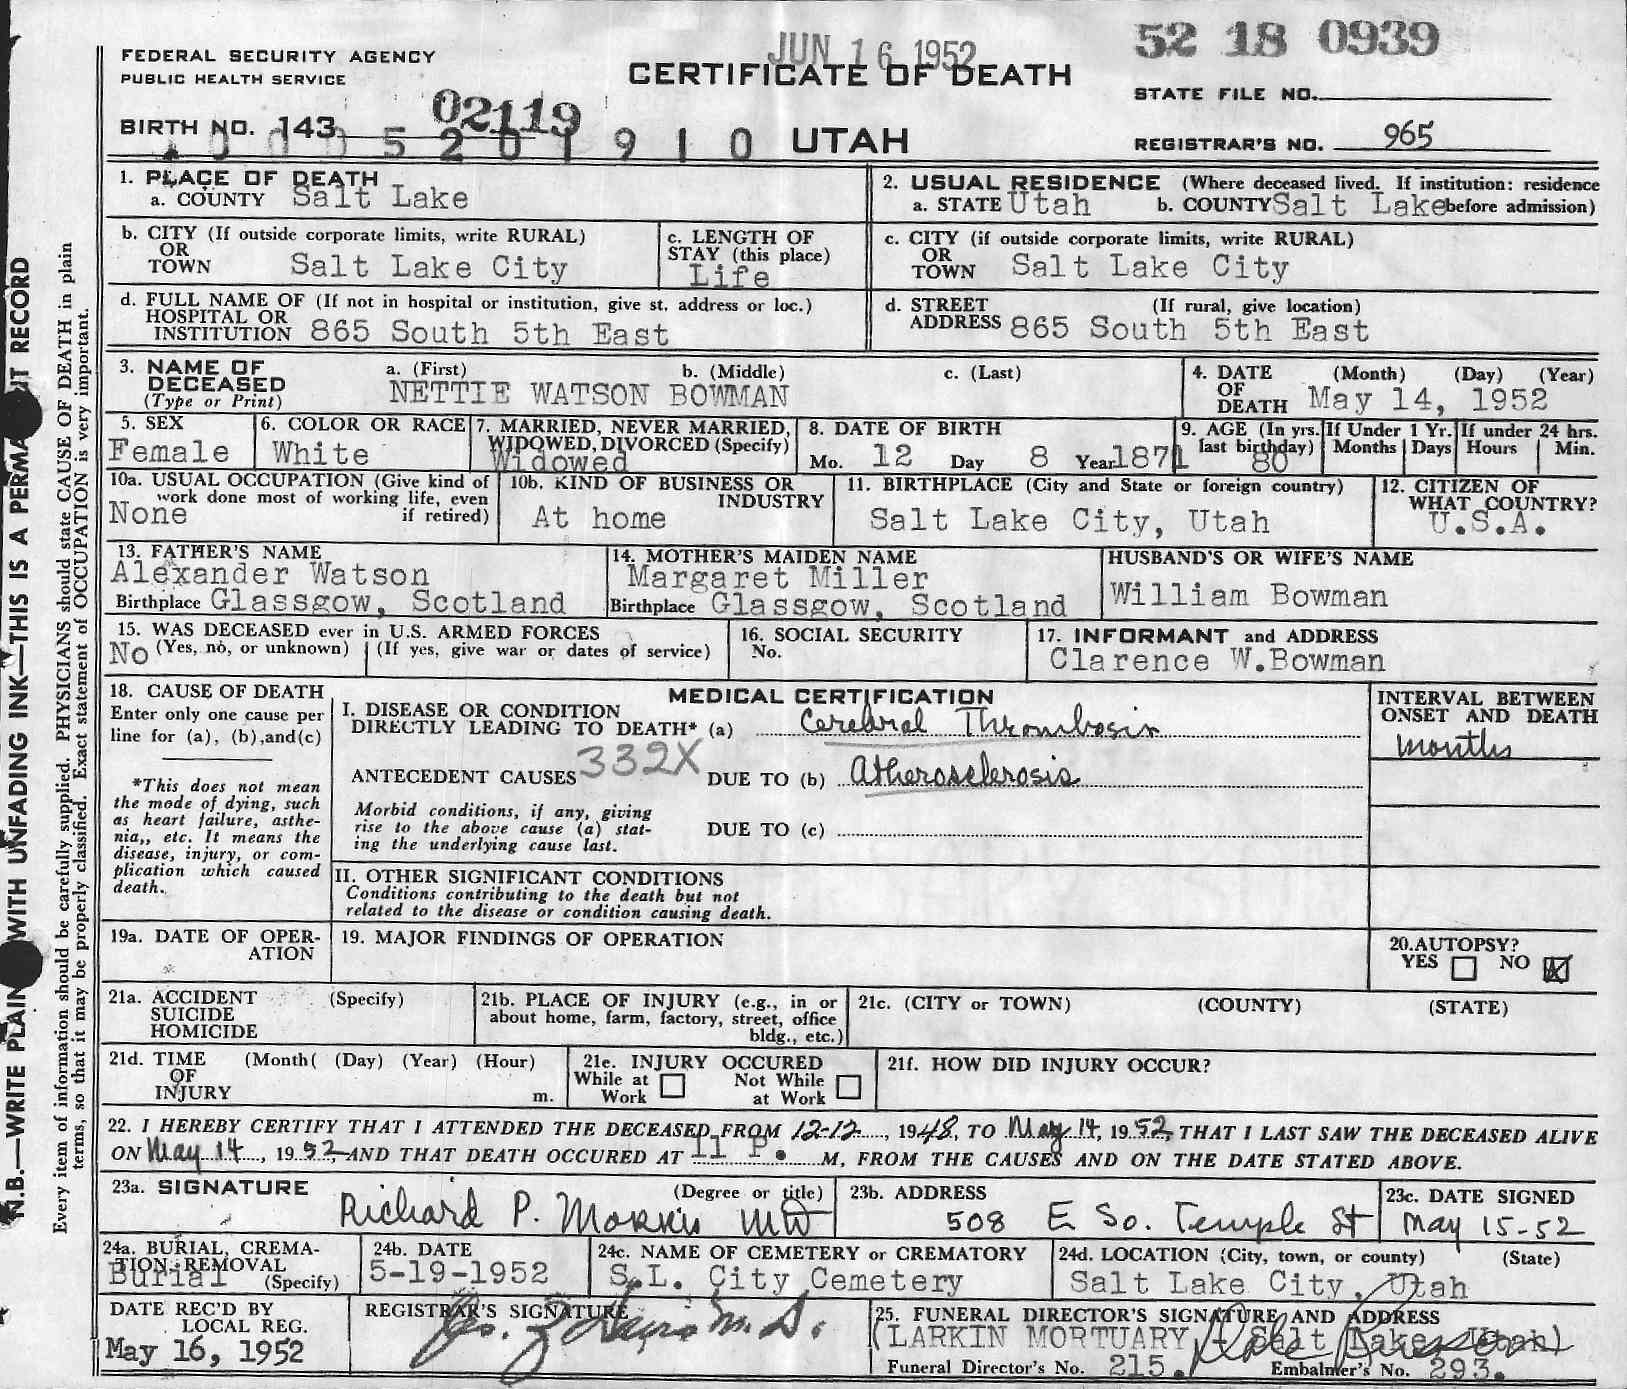 JUN 16 1952
52 18 0939
FEDERAL SECURITY AGENCY
PUBLIC HEALTH SERVICE
CERTIFICATE OF DEATH
STATE FILE NO.
BIRTH NO. 143 02119
UTAH
REGISTRAR'S NO. 965
1. PLACE OF DEATH
a. COUNTY Salt Lake
2. USUAL RESIDENCE (Where deceased lived. If institution: residence
a. STATE Utah b. COUNTY Salt Lake before admission)
b. CITY (If outside corporate limits, write RURAL)
OR
TOWN Salt Lake City
c. LENGTH OF
STAY (this place)
Life
c. CITY (if outside corporate limits, write RURAL)
OR
TOWN Salt Lake City
d. FULL NAME OF (If not in hospital or institution, give st. address or loc.)
HOSPITAL OR
INSTITUTION 865 South 5th East
d. STREET (If rural, give location)
ADDRESS 865 South 5th East
3. NAME OF
DECEASED
(Type or Print)
a. (First) b. (Middle) c. (Last)
NETTIE WATSON BOWMAN
4. DATE (Month) (Day) (Year)
OF
DEATH May 14, 1952
5. SEX
Female
6. COLOR OR RACE
White
7. MARRIED, NEVER MARRIED,
WIDOWED, DIVORCED (Specify)
Widowed
8. DATE OF BIRTH
Mo. 12 Day 8 Year 1871
9. AGE (In yrs.
last birthday)
80
If Under 1 Yr.
Months Days
If under 24 hrs.
Hours Min.
10a. USUAL OCCUPATION (Give kind of
work done most of working life, even
if retired)
None
10b. KIND OF BUSINESS OR
INDUSTRY
At home
11. BIRTHPLACE (City and State or foreign country)
Salt Lake City, Utah
12. CITIZEN OF
WHAT COUNTRY?
U.S.A.
13. FATHER'S NAME
Alexander Watson
Birthplace Glassgow, Scotland
14. MOTHER'S MAIDEN NAME
Margaret Miller
Birthplace Glassgow, Scotland
HUSBAND'S OR WIFE'S NAME
William Bowman
15. WAS DECEASED ever in U.S. ARMED FORCES
No (Yes, no, or unknown) (If yes, give war or dates of service)
16. SOCIAL SECURITY
No.
17. INFORMANT and ADDRESS
Clarence W.Bowman
18. CAUSE OF DEATH
Enter only one cause per
line for (a), (b),and(c)
*This does not mean
the mode of dying, such
as heart failure, asthe-
nia,, etc. It means the
disease, injury, or com-
plication which caused
death.
MEDICAL CERTIFICATION
I. DISEASE OR CONDITION
DIRECTLY LEADING TO DEATH* (a) Cerebral Thrombosis
ANTECEDENT CAUSES 332X DUE TO (b) Atherosclerosis
Morbid conditions, if any, giving
rise to the above cause (a) stat-
ing the underlying cause last.
DUE TO (c)
II. OTHER SIGNIFICANT CONDITIONS
Conditions contributing to the death but not
related to the disease or condition causing death.
INTERVAL BETWEEN
ONSET AND DEATH
months
19a. DATE OF OPER-
ATION
19. MAJOR FINDINGS OF OPERATION
20.AUTOPSY?
YES NO X
21a. ACCIDENT (Specify)
SUICIDE
HOMICIDE
21b. PLACE OF INJURY (e.g., in or
about home, farm, factory, street, office
bldg., etc.)
21c. (CITY or TOWN) (COUNTY) (STATE)
21d. TIME (Month( (Day) (Year) (Hour)
OF
INJURY m.
21e. INJURY OCCURED
While at Not While
Work at Work
21f. HOW DID INJURY OCCUR?
22. I HEREBY CERTIFY THAT I ATTENDED THE DECEASED FROM 12-12, 1948, TO May 14, 1952, THAT I LAST SAW THE DECEASED ALIVE
ON May 14, 1952, AND THAT DEATH OCCURED AT 11 P. M, FROM THE CAUSES AND ON THE DATE STATED ABOVE.
23a. SIGNATURE (Degree or title)
Richard P. Morris MD
23b. ADDRESS
508 E So. Temple St
23c. DATE SIGNED
May 15-52
24a. BURIAL, CREMA-
TION, REMOVAL
Burial (Specify)
24b. DATE
5-19-1952
24c. NAME OF CEMETERY or CREMATORY
S.L. City Cemetery
24d. LOCATION (City, town, or county) (State)
Salt Lake City, Utah
DATE REC'D BY
LOCAL REG.
May 16, 1952
REGISTRAR'S SIGNATURE
25. FUNERAL DIRECTOR'S SIGNATURE AND ADDRESS
(LARKIN MORTUARY - Salt Lake, Utah)
Funeral Director's No. 215. Embalmer's No. 293.
N.B.—WRITE PLAIN WITH UNFADING INK—THIS IS A PERMA NT RECORD
Every item of information should be carefully supplied. PHYSICIANS should state CAUSE OF DEATH in plain
terms, so that it may be properly classified. Exact statement of OCCUPATION is very important.